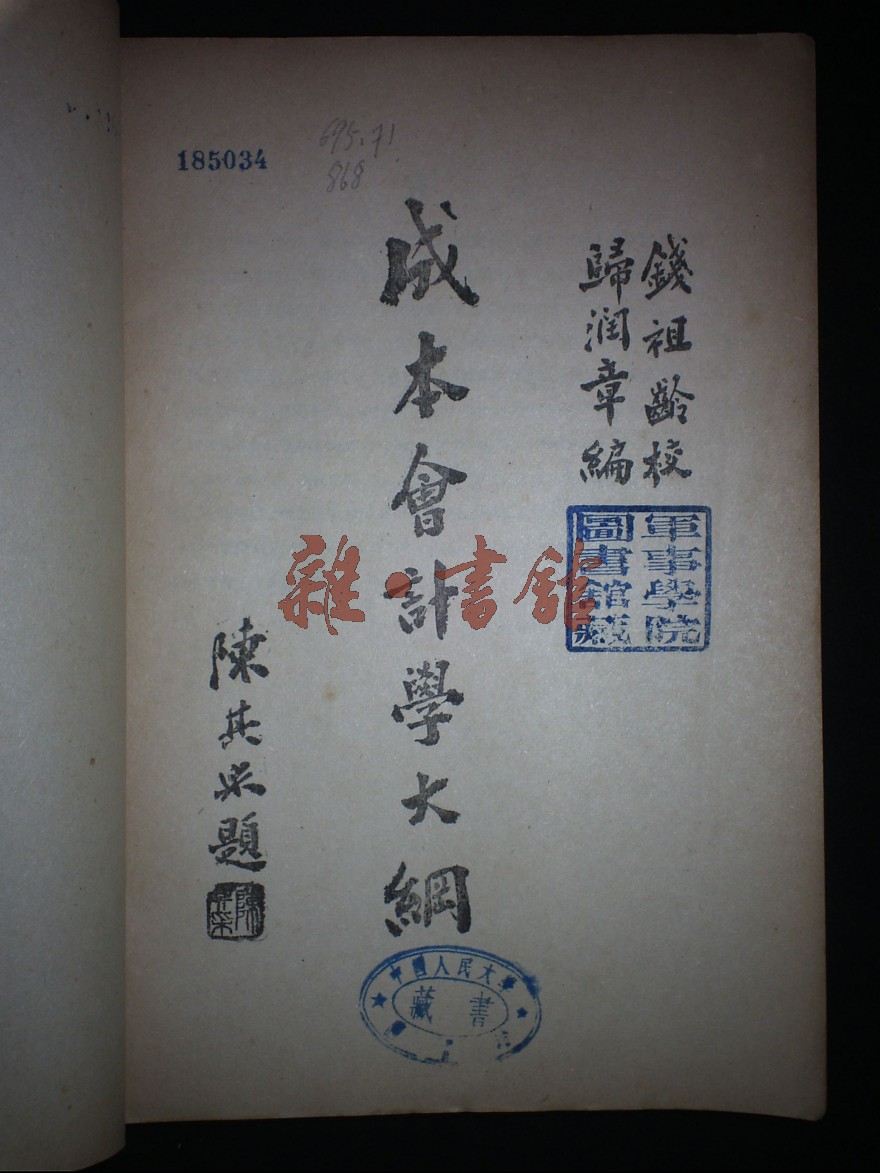 185034
695.71
868
錢祖齡校
歸潤章編
成本會計學大綱
陳其采題
陳其采
軍事學院
圖書館藏
中國人民大學
藏書
雜·書館